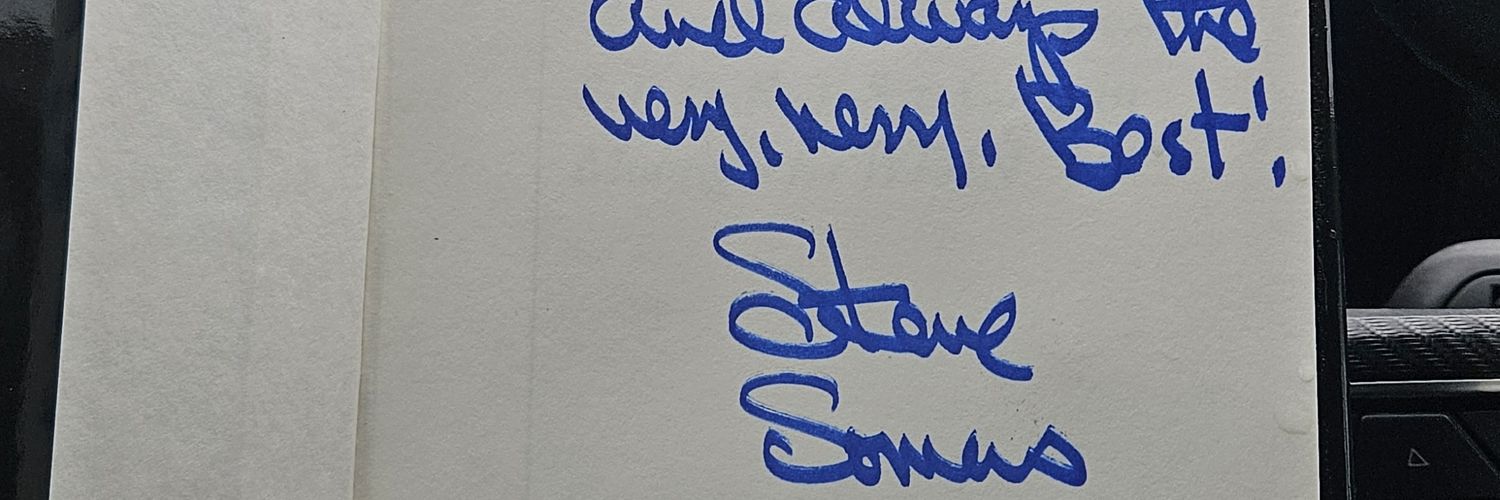 and always the
very, very, Best!
Steve
Somers